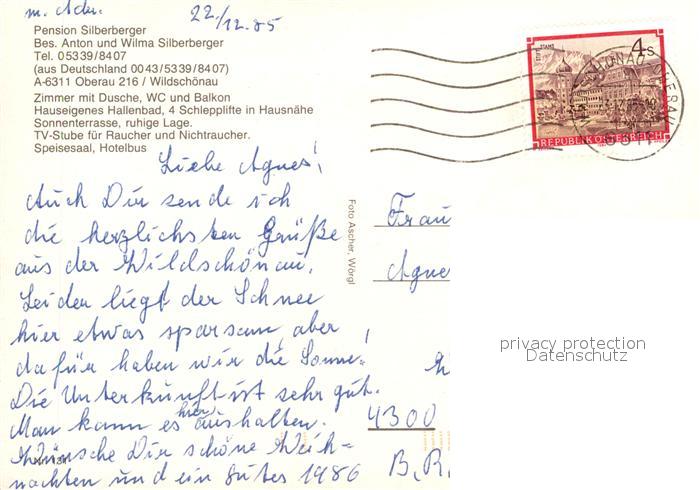 m. Adr.
22./12.85
Pension Silberberger
Bes. Anton und Wilma Silberberger
Tel. 05339/8407
(aus Deutschland 0043/5339/8407)
A-6311 Oberau 216 / Wildschönau
Zimmer mit Dusche, WC und Balkon
Hauseigenes Hallenbad, 4 Schlepplifte in Hausnähe
Sonnenterrasse, ruhige Lage.
TV-Stube für Raucher und Nichtraucher.
Speisesaal, Hotelbus
Liebe Agnes!
Auch Dir sende ich
die herzlichsten Grüße
aus der Wildschönau.
Leider liegt der Schnee
hier etwas sparsam, aber
dafür haben wir die Sonne!
Die Unterkunft ist sehr gut.
Man kann es hier aushalten.
Wünsche Dir schöne Weih-
nachten und ein gutes 1986
Foto Ascher, Wörgl
STIFT STAMS
4s
REPUBLIK ÖSTERREICH
Frau
Agne
4300
B.R.
privacy protection
Datenschutz